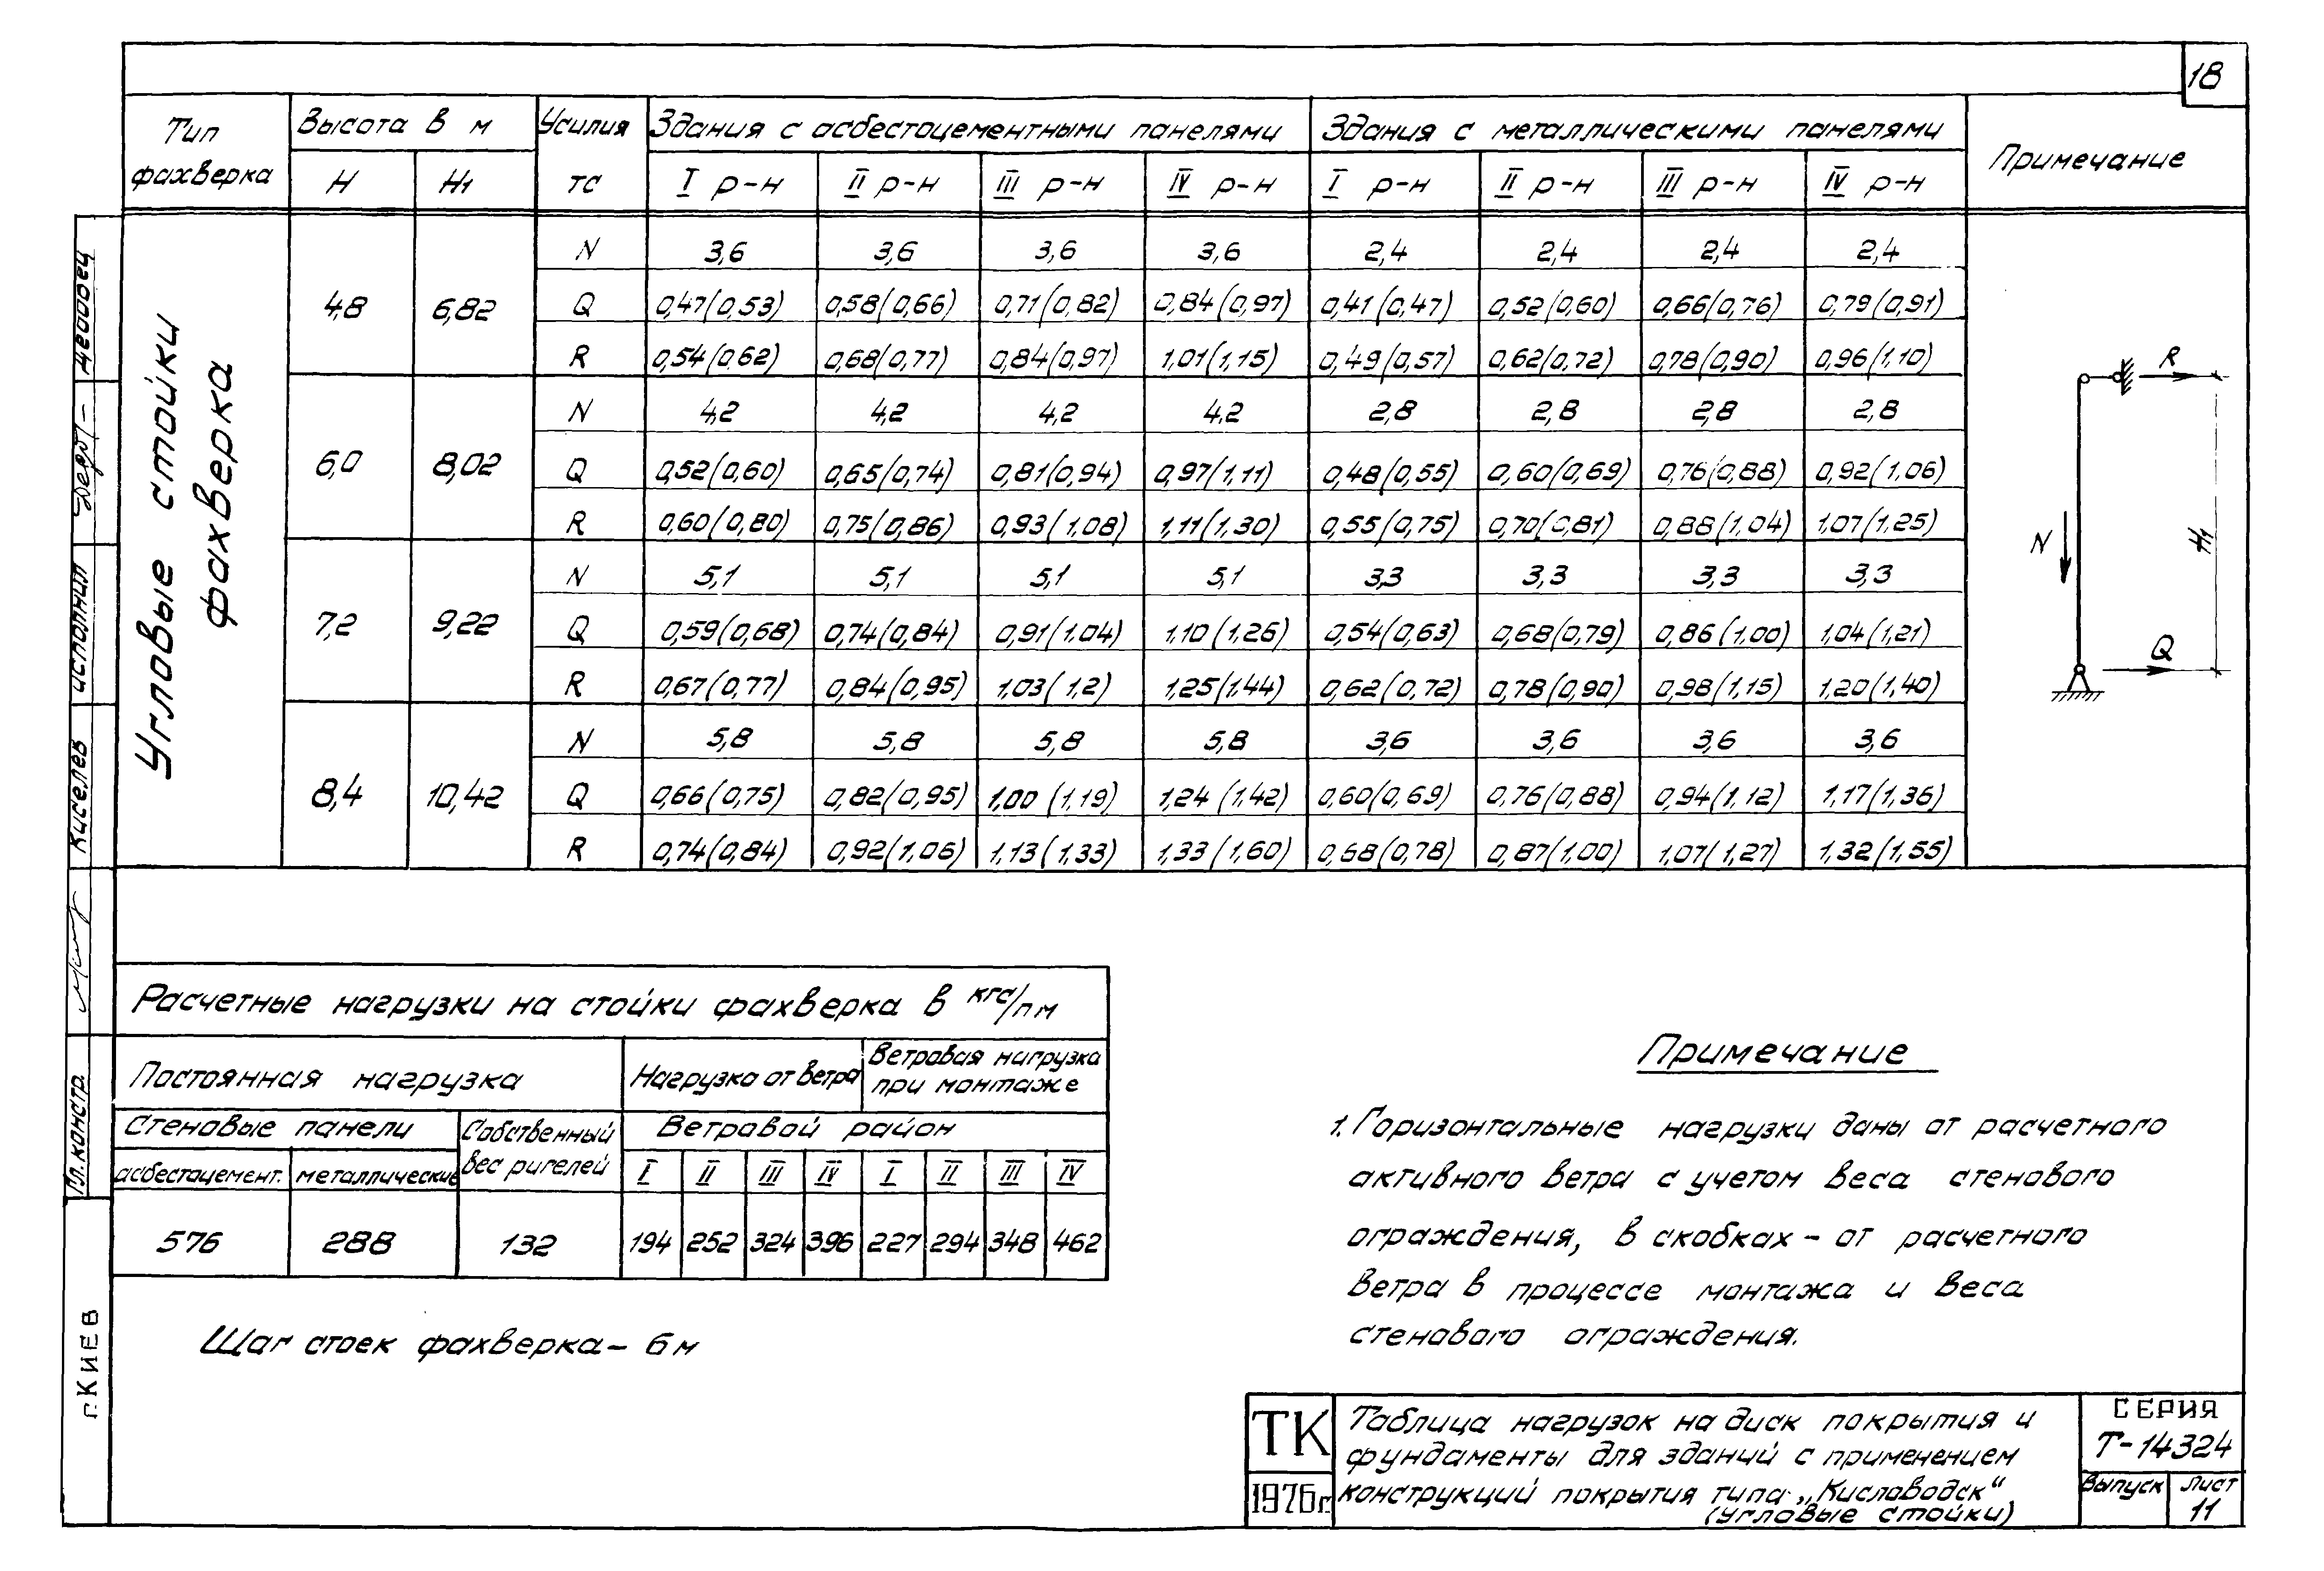 18
Тип фахверка | Высота в м | Усилия тс | Здания с асбестоцементными панелями | Здания с металлическими панелями | Примечание
H | H1 | I р-н | II р-н | III р-н | IV р-н | I р-н | II р-н | III р-н | IV р-н
Угловые стойки фахверка
4,8 | 6,82
N | 3,6 | 3,6 | 3,6 | 3,6 | 2,4 | 2,4 | 2,4 | 2,4
Q | 0,47(0,53) | 0,58(0,66) | 0,71(0,82) | 0,84(0,97) | 0,41(0,47) | 0,52(0,60) | 0,66(0,76) | 0,79(0,91)
R | 0,54(0,62) | 0,68(0,77) | 0,84(0,97) | 1,01(1,15) | 0,49(0,57) | 0,62(0,72) | 0,78(0,90) | 0,96(1,10)
6,0 | 8,02
N | 4,2 | 4,2 | 4,2 | 4,2 | 2,8 | 2,8 | 2,8 | 2,8
Q | 0,52(0,60) | 0,65(0,74) | 0,81(0,94) | 0,97(1,11) | 0,48(0,55) | 0,60(0,69) | 0,76(0,88) | 0,92(1,06)
R | 0,60(0,80) | 0,75(0,86) | 0,93(1,08) | 1,11(1,30) | 0,55(0,75) | 0,70(0,81) | 0,88(1,04) | 1,07(1,25)
7,2 | 9,22
N | 5,1 | 5,1 | 5,1 | 5,1 | 3,3 | 3,3 | 3,3 | 3,3
Q | 0,59(0,68) | 0,74(0,84) | 0,91(1,04) | 1,10(1,26) | 0,54(0,63) | 0,68(0,79) | 0,86(1,00) | 1,04(1,21)
R | 0,67(0,77) | 0,84(0,95) | 1,03(1,2) | 1,25(1,44) | 0,62(0,72) | 0,78(0,90) | 0,98(1,15) | 1,20(1,40)
8,4 | 10,42
N | 5,8 | 5,8 | 5,8 | 5,8 | 3,6 | 3,6 | 3,6 | 3,6
Q | 0,66(0,75) | 0,82(0,95) | 1,00(1,19) | 1,24(1,42) | 0,60(0,69) | 0,76(0,88) | 0,94(1,12) | 1,17(1,36)
R | 0,74(0,84) | 0,92(1,06) | 1,13(1,33) | 1,33(1,60) | 0,68(0,78) | 0,87(1,00) | 1,07(1,27) | 1,32(1,55)
R
N
H1
Q
Расчетные нагрузки на стойки фахверка в кгс/п.м
Постоянная нагрузка | Нагрузка от ветра | Ветровая нагрузка при монтаже
Стеновые панели | Собственный вес ригелей | Ветровой район
асбестоцемент. | металлические | I | II | III | IV | I | II | III | IV
576 | 288 | 132 | 194 | 252 | 324 | 396 | 227 | 294 | 348 | 462
Шаг стоек фахверка – 6 м
Примечание
1. Горизонтальные нагрузки даны от расчетного
активного ветра с учетом веса стенового
ограждения, в скобках – от расчетного
ветра в процессе монтажа и веса
стенового ограждения.
ТК
1976г.
Таблица нагрузок на диск покрытия и
фундаменты для зданий с применением
конструкций покрытия типа „Кисловодск“
(угловые стойки)
СЕРИЯ
Т-14324
Выпуск
Лист
11
Гл. констр.
Киселев
исполнил
г. КИЕВ